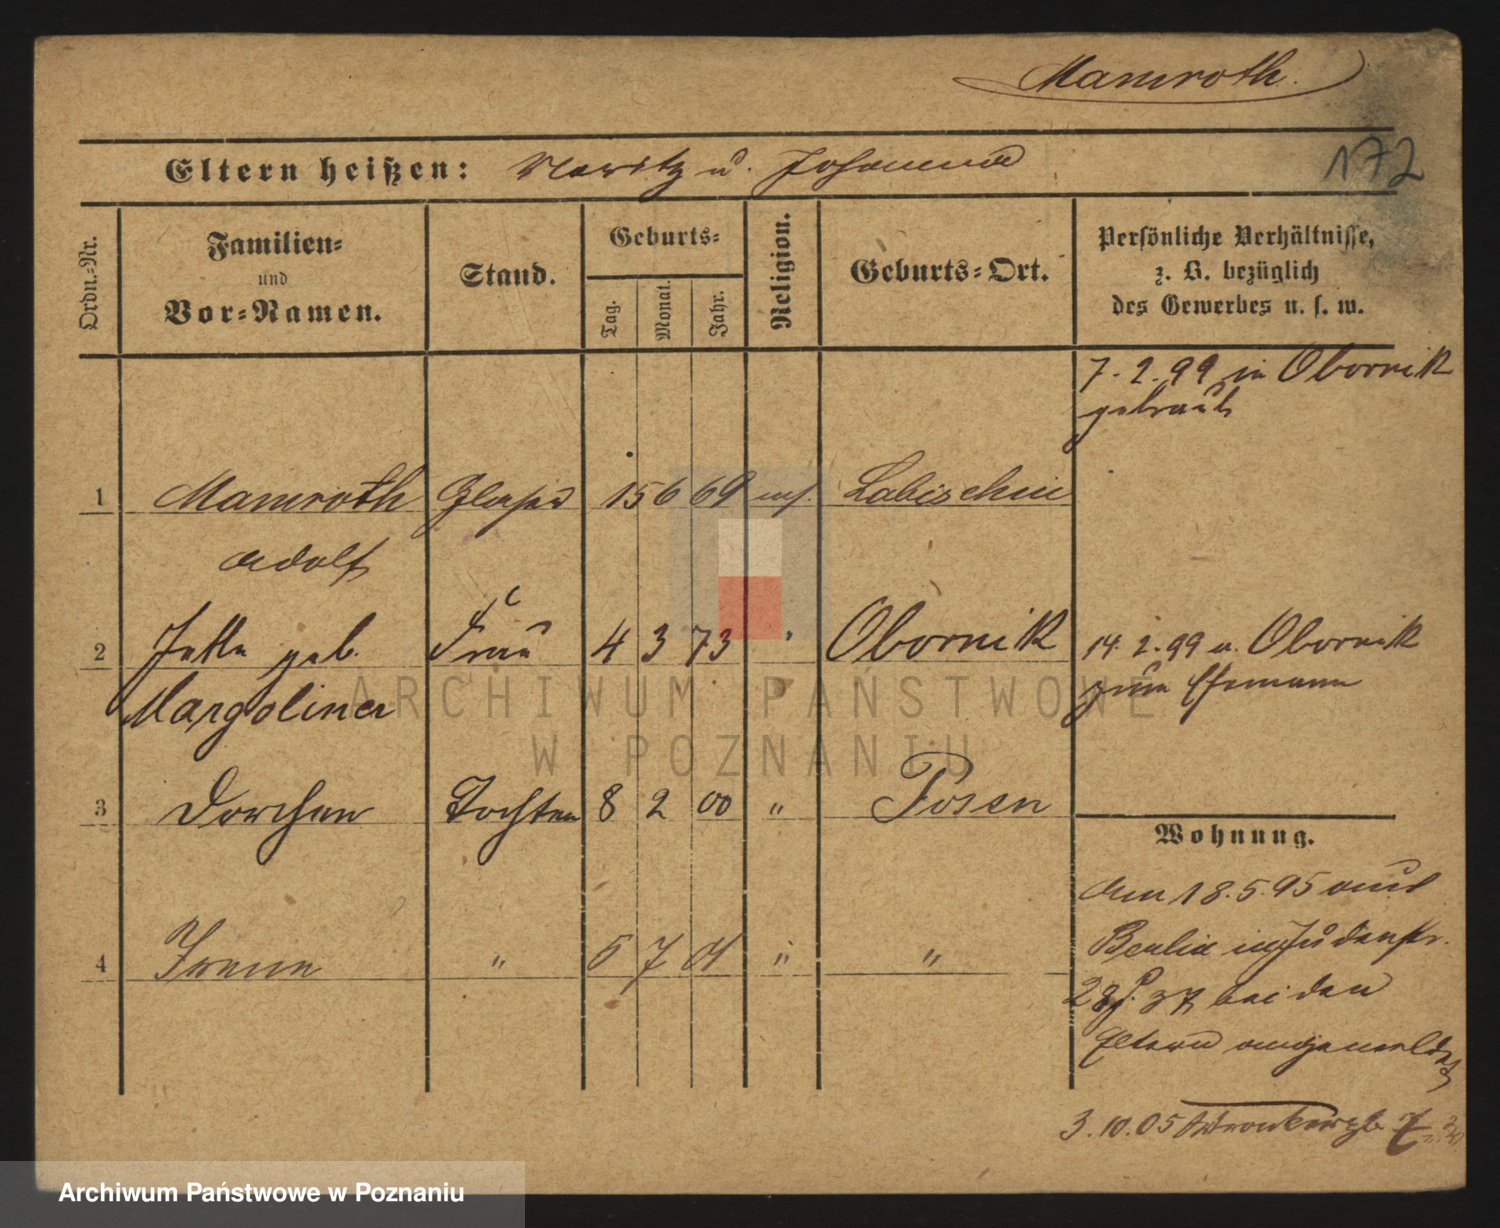 Mamroth.
172
Eltern heißen: Moritz u. Johanna
Ordn.-Nr.
Familien-
und
Vor-Namen.
Stand.
Geburts-
Tag.
Monat.
Jahr.
Religion.
Geburts-Ort.
Persönliche Verhältnisse,
z. B. bezüglich
des Gewerbes u. s. w.
7. 2. 99 in Obornik
getraut
1 Mamroth Glaser 15 6 69 mos. Labischin
Adolf
2 Jette geb. Frau 4 3 73 " Obornik 14. 2. 99 v. Obornik
Margoliner zum Ehemann
3 Dorchen Tochter 8 2 00 " Posen
Wohnung.
4 Irene " 5 7 01 " "
am 18.5.95 aus
Berlin Judenstr.
bei den
Eltern angemeldet
3. 10. 05
ARCHIWUM PAŃSTWOWE
W POZNANIU
Archiwum Państwowe w Poznaniu